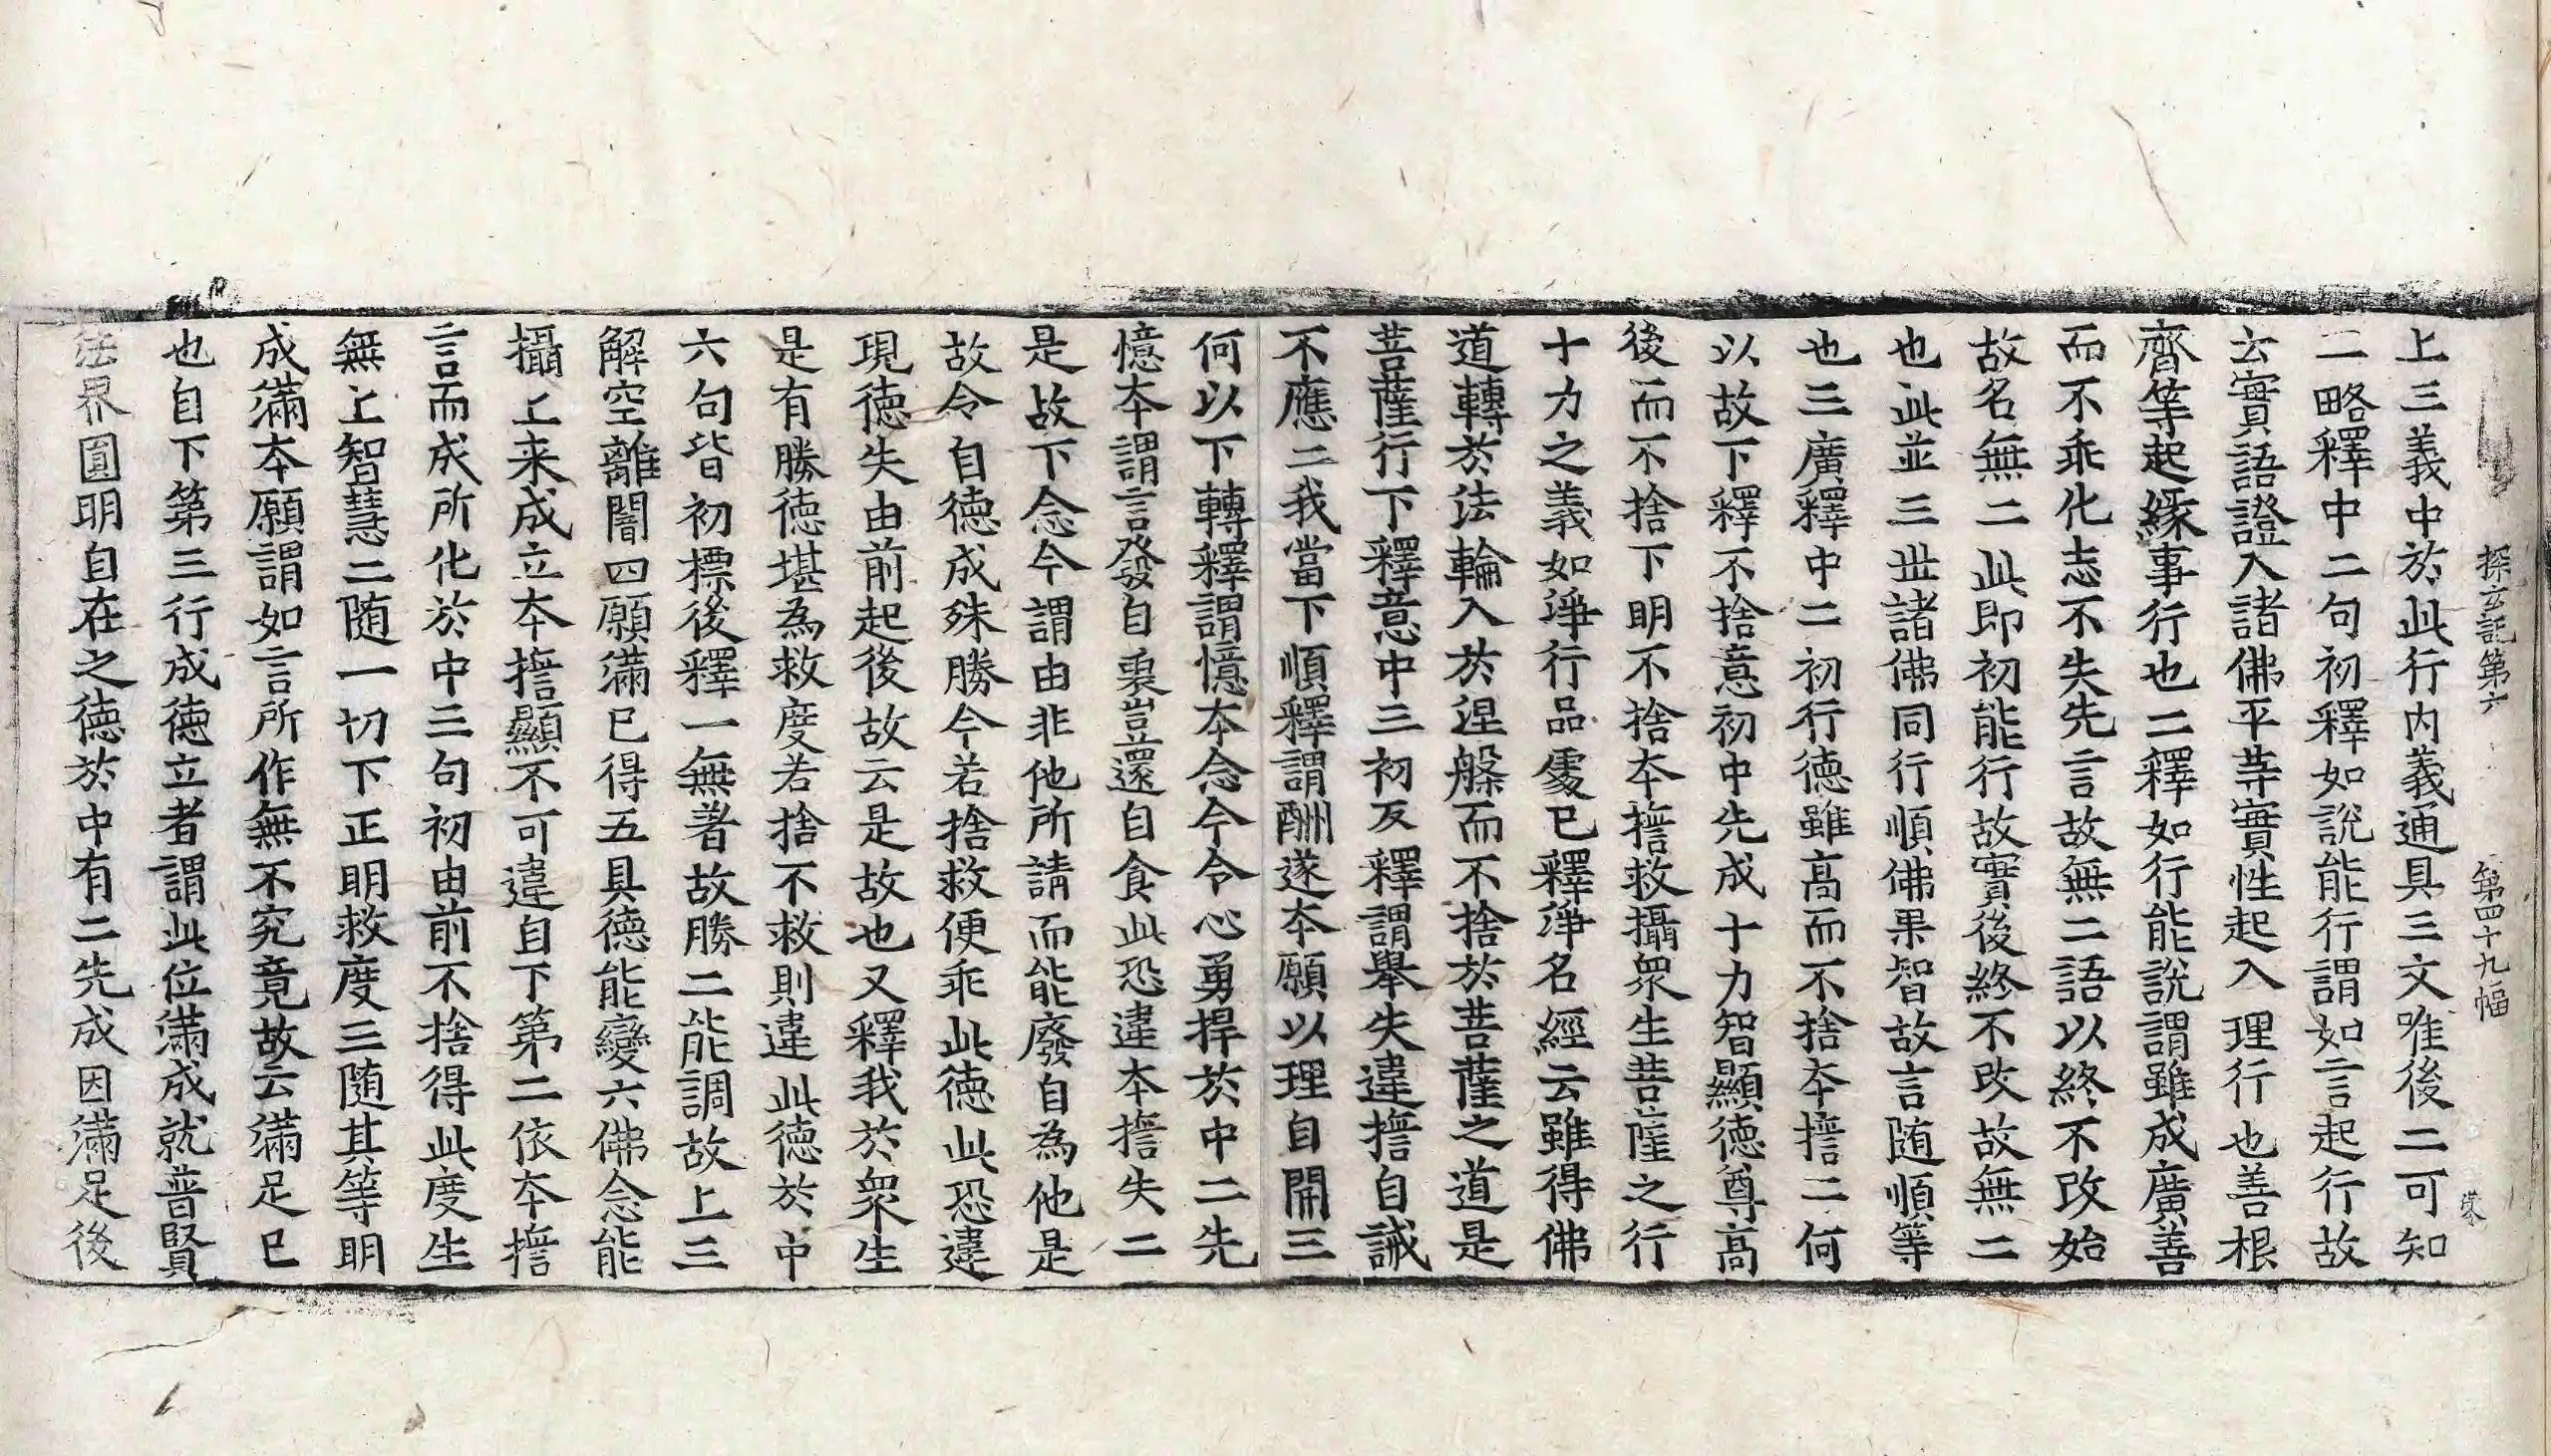 探玄記第六 第四十九幅
上三義中於此行内義通具三文唯後二可知
二略釋中二句初釋如說能行謂如言起行故
云實語證入諸佛平等實性起入理行也善根
齊等起緣事行也二釋如行能說謂雖成廣善
而不乖化志不失先言故無二語以終不改始
故名無二此即初能行故實後終不改故無二
也此並三世諸佛同行順佛果智故言随順等
也三廣釋中二初行德雖高而不捨本誓二何
以故下釋不捨意初中先成十力智顯德尊高
後而不捨下明不捨本誓救攝衆生菩薩之行
十力之義如淨行品處已釋淨名經云雖得佛
道轉於法輪入於涅槃而不捨於菩薩之道是
菩薩行下釋意中三初反釋謂舉失違誓自誡
不應二我當下順釋謂酬遂本願以理自開三
何以下轉釋謂憶本念今令心勇捍於中二先
憶本謂言發自裏豈還自食此恐違本誓失二
是故下念今謂由非他所請而能廢自為他是
故令自德成殊勝今若捨救便乖此德此恐違
現德失由前起後故云是故也又釋我於衆生
是有勝德堪為救度若捨不救則違此德於中
六句皆初標後釋一無著故勝二能調故上三
解空離闇四願滿已得五具德能變六佛念能
攝上来成立本誓顯不可違自下第二依本誓
言而成所化於中三句初由前不捨得此度生
無上智慧二随一切下正明救度三随其等明
成滿本願謂如言所作無不究竟故云滿足已
也自下第三行成德立者謂此位滿成就普賢
法界圓明自在之德於中有二先成因滿足後